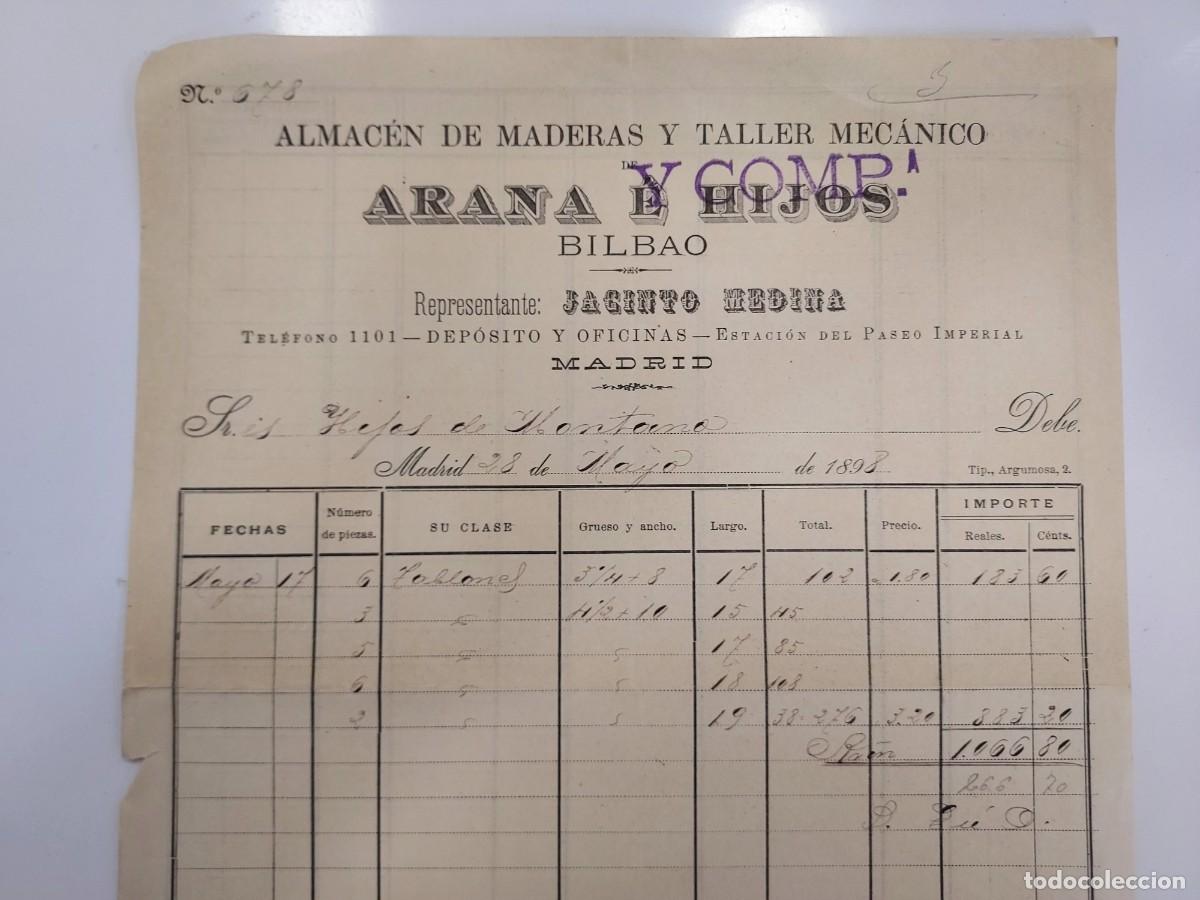 N.º 678
5
ALMACÉN DE MADERAS Y TALLER MECÁNICO
DE
Y COMP.A
ARANA É HIJOS
BILBAO
Representante: JACINTO MEDINA
TELÉFONO 1101 — DEPÓSITO Y OFICINAS — ESTACIÓN DEL PASEO IMPERIAL
MADRID
Sr.es Hijos de Montano Debe.
Madrid 28 de Mayo de 1898 Tip., Argumosa, 2.
FECHAS Número de piezas. SU CLASE Grueso y ancho. Largo. Total. Precio. IMPORTE Reales. Cénts.
Mayo 17 6 Tablones 3 1/4 + 8 17 102 1.80 183 60
3 " 4 1/2 + 10 15 45
5 " " 17 85
6 " " 18 108
2 " " 19 38 - 276 3.20 883 20
1.066 80
266 70
todocoleccion